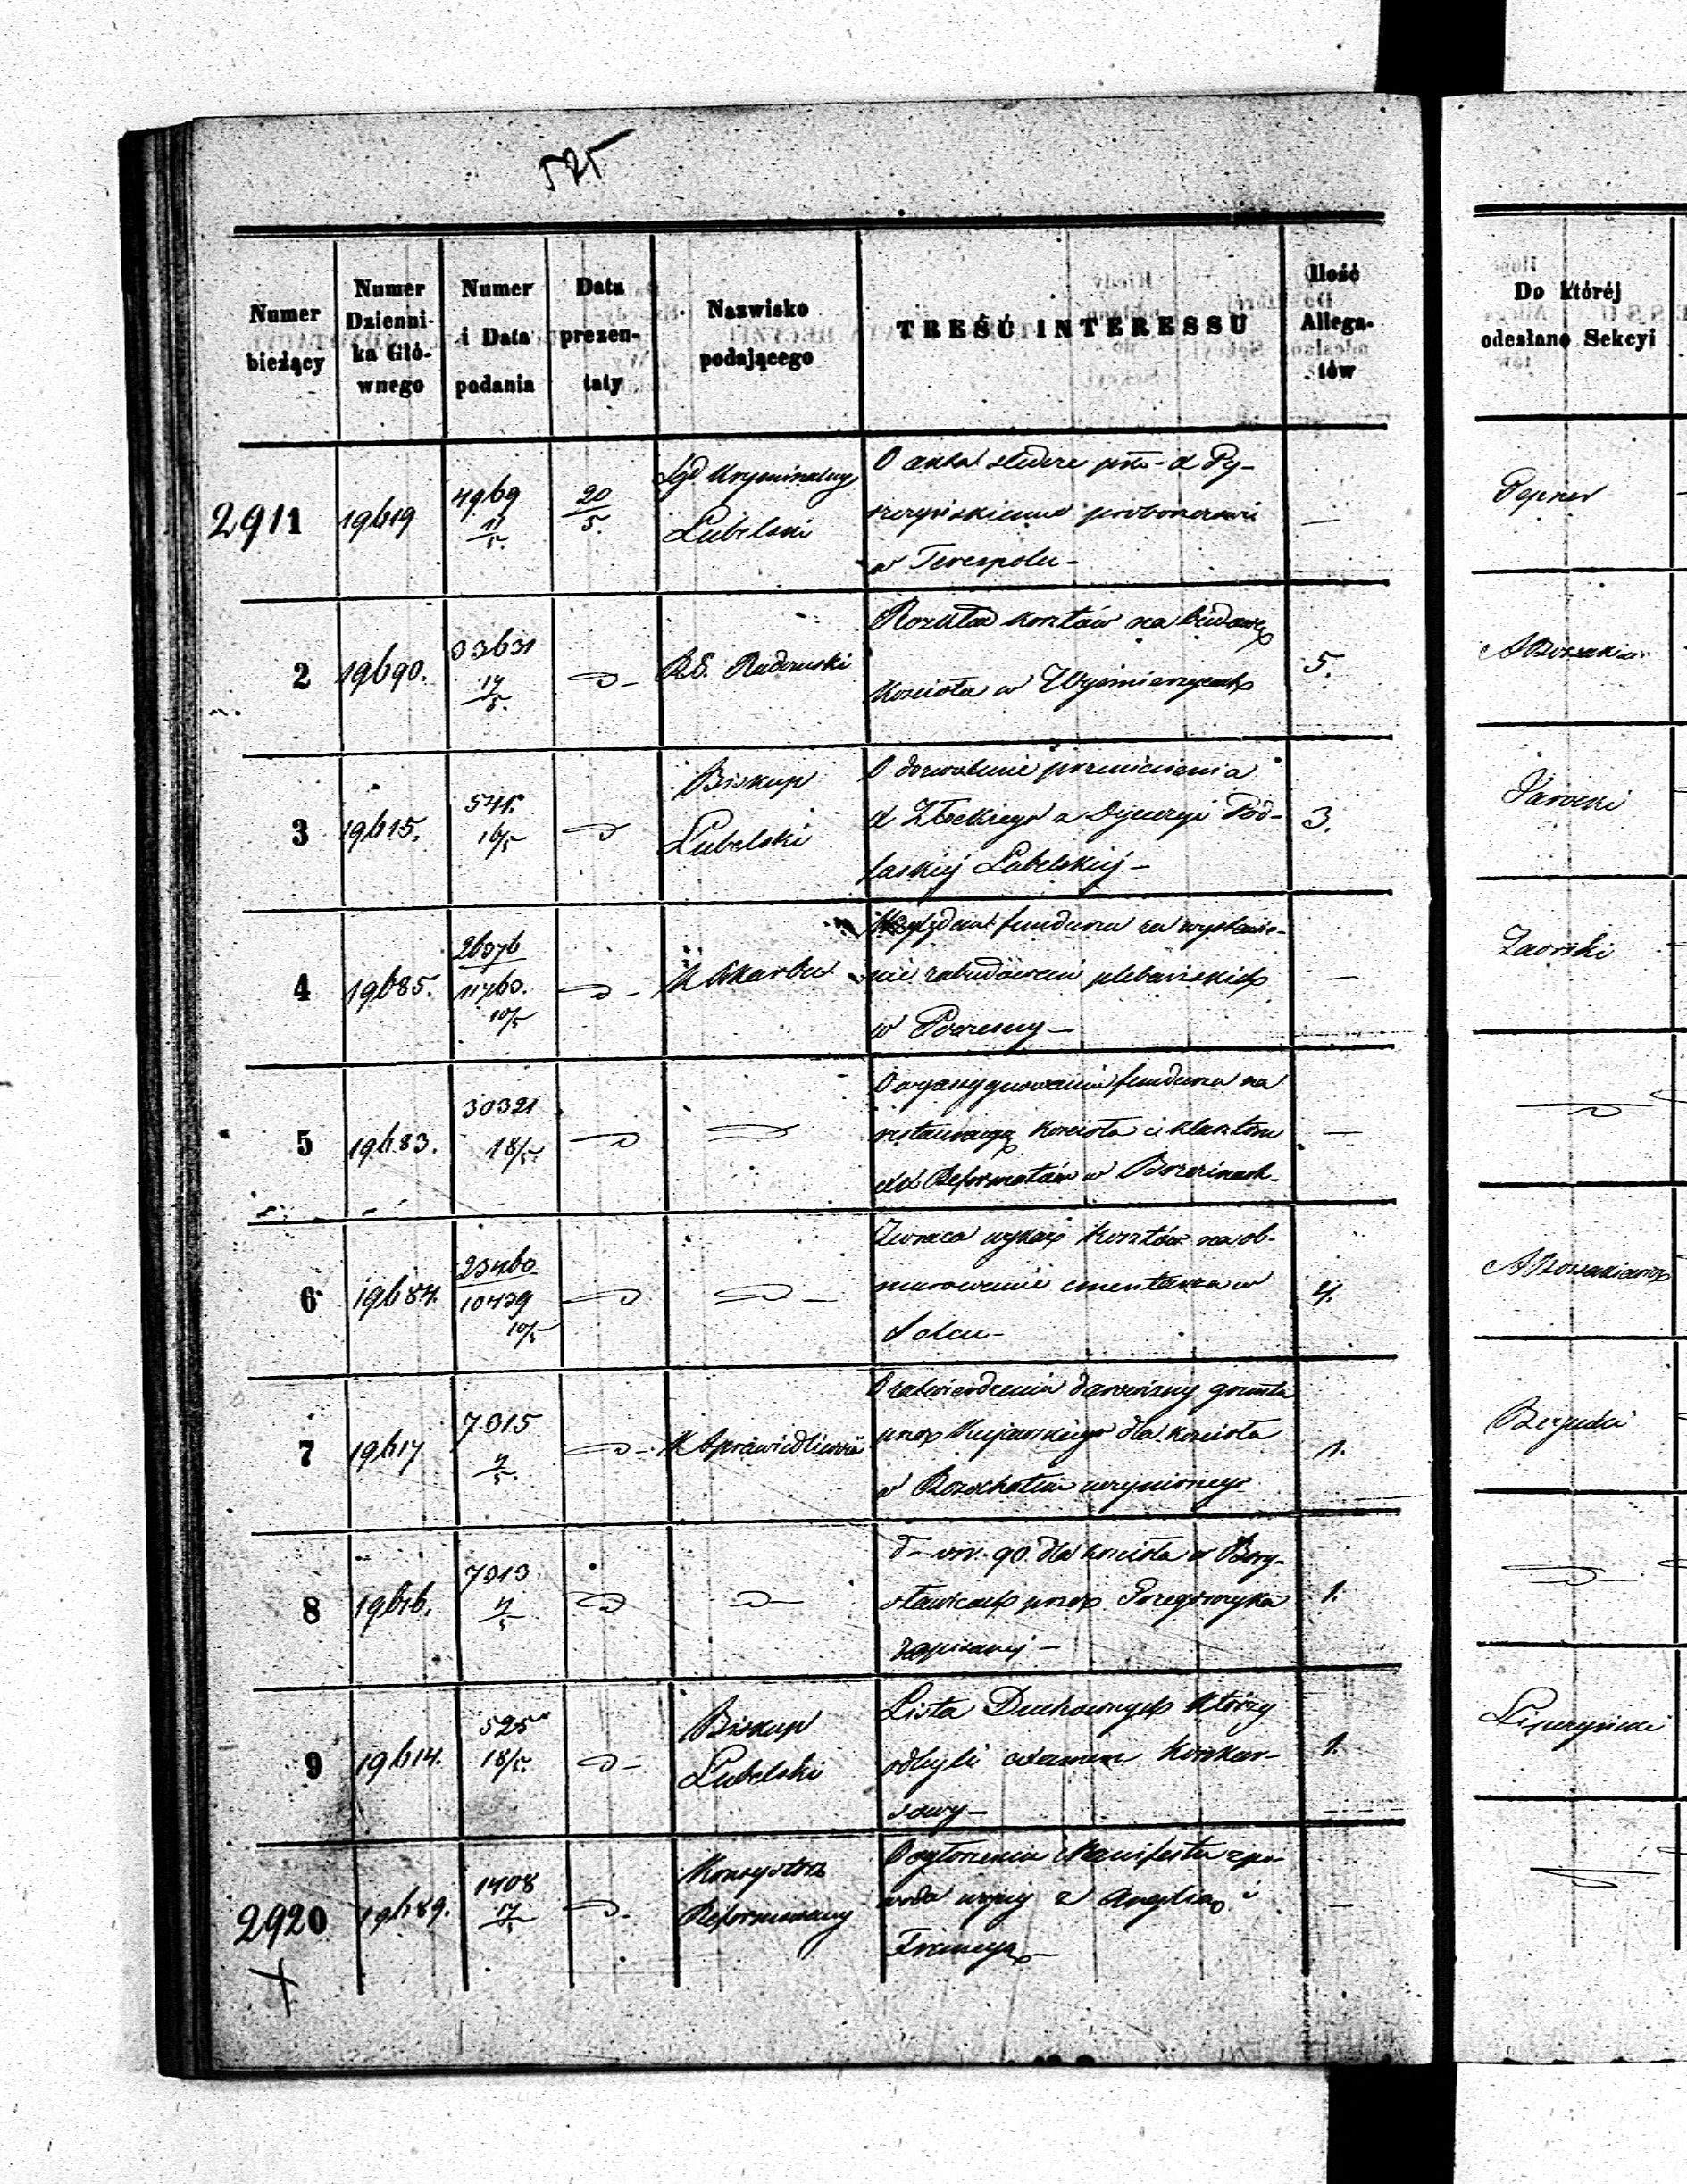 525
Numer bieżący
Numer Dzienni-ka Głó-wnego
Numer i Data podania
Data prezen-taty
Nazwisko podającego
TREŚĆ INTERESSU
Ilość Allega-tów
Do któréj odesłano Sekcyi
2911
19619
4969
11/5.
20/5.
Sąd Kryminalny
Lubelski
O akta śledcze
proboszczowi
w Terespolu -
—
Pepner
2
19690.
33631
17/5.
R. G. Radomski
Rozkład kosztów na budowę
Kościoła w
5.
3
19615.
541.
16/5
Biskup
Lubelski
O dozwolenie przeniesienia
X Złockiego z Dyecezyi Pod-
laskiej Lubelskiej -
3.
Jarocki
4
19685.
26376
11760.
10/5
K Skarbu
Względem funduszu na wystawie-
nie zabudowań plebańskich
w
—
Zaorski
5
19683.
30321
18/5.
O wyassygnowanie funduszu na
restauracyą Kościoła i klasztoru
XX Reformatów w Brzezinach -
—
6
19684.
23460
10439
10/5
Zwraca wykaz kosztów na ob-
murowanie cmentarza w
Solcu -
4.
7
19617
7315
7/5.
K Sprawiedliwości
O zatwierdzenie darowizny gruntu
przez Kujawskiego dla kościoła
w uczynionego
1.
8
19616.
7313
7/5
dla kościoła w Bory-
sławicach przez
zapisanej -
1.
9
19614.
525
18/5.
Biskup
Lubelski
Lista Duchownych którzy
odbyli examen konkur-
sowy -
1.
2920
19689.
1408
17/5
Konsystorz
Reformowany
O ogłoszeniu Manifestu z po-
wodu wojny z Anglią i
Francyą -
—